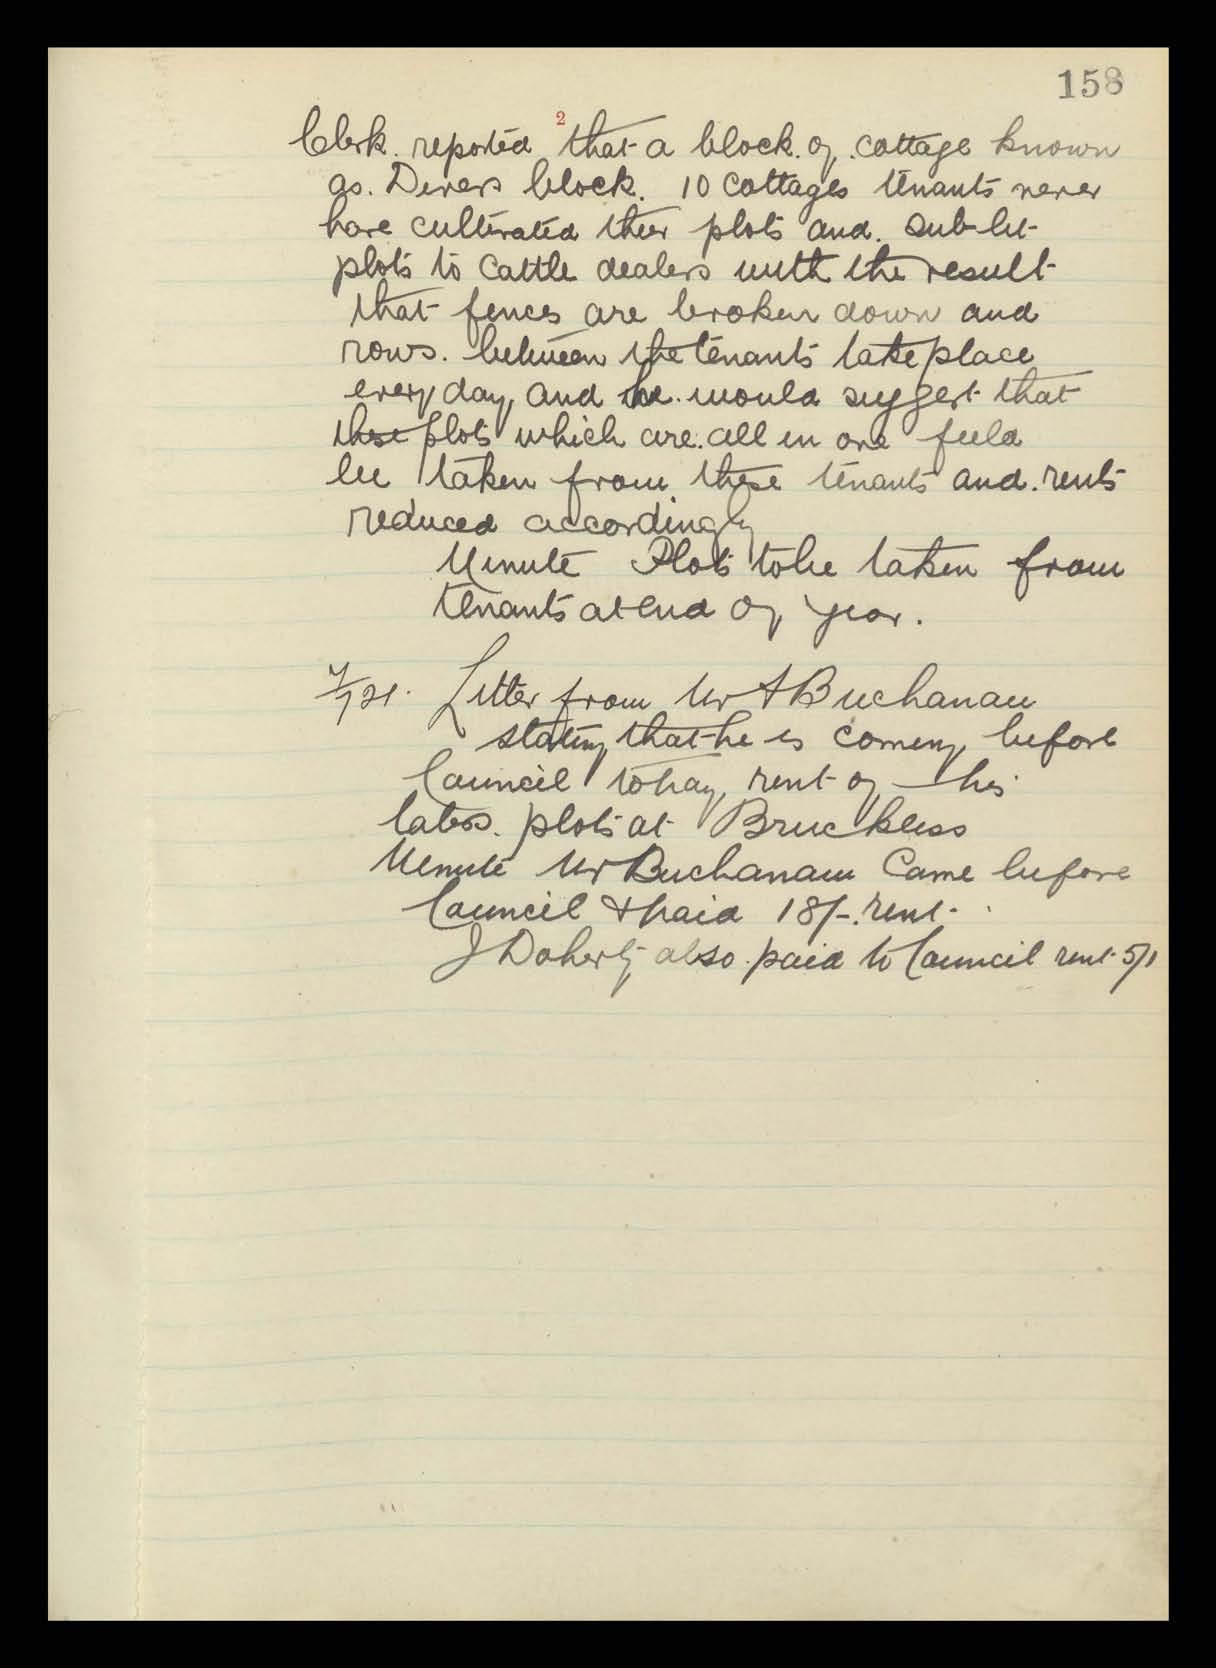 158
2
Clerk. reported that a block. of. cottage known
as. Divers block. 10 cottages tenants never
have cultivated their plots and. sub-let
plots to cattle dealers with the result
that fences are broken down and
rows. between the tenants take place
every day, and he. would suggest that
these plots which are. all in one field
be taken from these tenants and. rents
reduced accordingly
Minute Plots to be taken from
tenants at end of year.
Letter from Mr A Buchanan
stating that he is coming before
Council to pay rent of his
plots at Bruckless
Minute Mr Buchanan Came before
Council & paid 18/-. rent.
J Doherty also. paid to Council rent 5/1